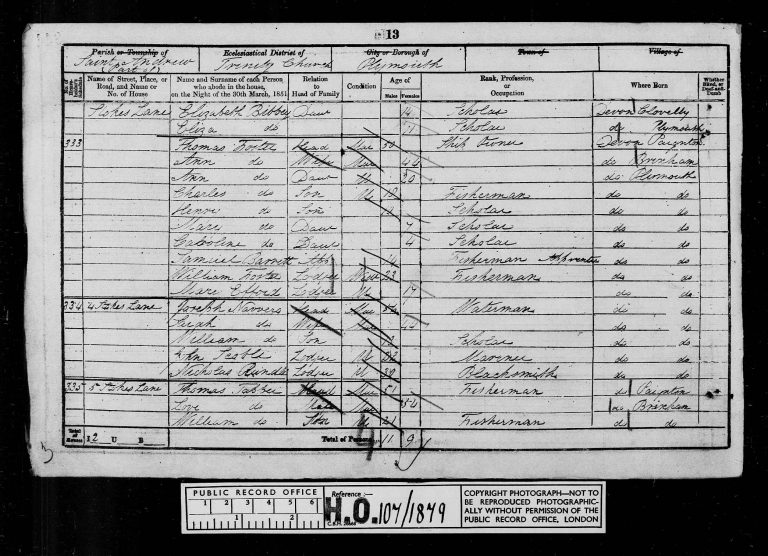 13
Parish or Township of Ecclesiastical District of City or Borough of Town of Village of
Saint Andrew Trinity Church Plymouth
(Part of)
No. of House-holder's Schedule Name of Street, Place, or Road, and Name or No. of House Name and Surname of each Person who abode in the house, on the Night of the 30th March, 1851 Relation to Head of Family Condition Age of Males Females Rank, Profession, or Occupation Where Born Whether Blind, or Deaf-and-Dumb
Stokes Lane Elizabeth Bibbey Daur 14 Scholar Devon Clovelly
Eliza do 11 Scholar do Plymouth
333 Thomas Foster Head Mar 50 Ship Owner Devon Paynton
Ann do Wife Mar 44 do Brixham
Ann do Daur U 20 do Plymouth
Charles do Son U 18 Fisherman do do
Henry do Son Scholar do do
Mary do Daur 7 Scholar do do
Caroline do Daur 4 Scholar do do
Samuel Barrett Fisherman Apprentice do do
William Foster Lodger 23 Fisherman do do
Mary Lodger U 17 do do
334 4 Stokes Lane Joseph Head Mar Waterman do do
Sarah do Wife Mar 44 do do
William do Son Scholar do do
John Lodger U Mariner do do
Nicholas Rundle Lodger U Blacksmith do do
335 5 Stokes Lane Thomas Tabber Head Mar 51 Fisherman do Paynton
Love do Wife Mar 54 do Brixham
William do Son U 21 Fisherman do do
Total of Houses I 2 U B Total of Persons 11 9
PUBLIC RECORD OFFICE
1 2 3 4 5 6
1 2
Reference :-
H.O. 107/1879
COPYRIGHT PHOTOGRAPH—NOT TO BE REPRODUCED PHOTOGRAPHICALLY WITHOUT PERMISSION OF THE PUBLIC RECORD OFFICE, LONDON